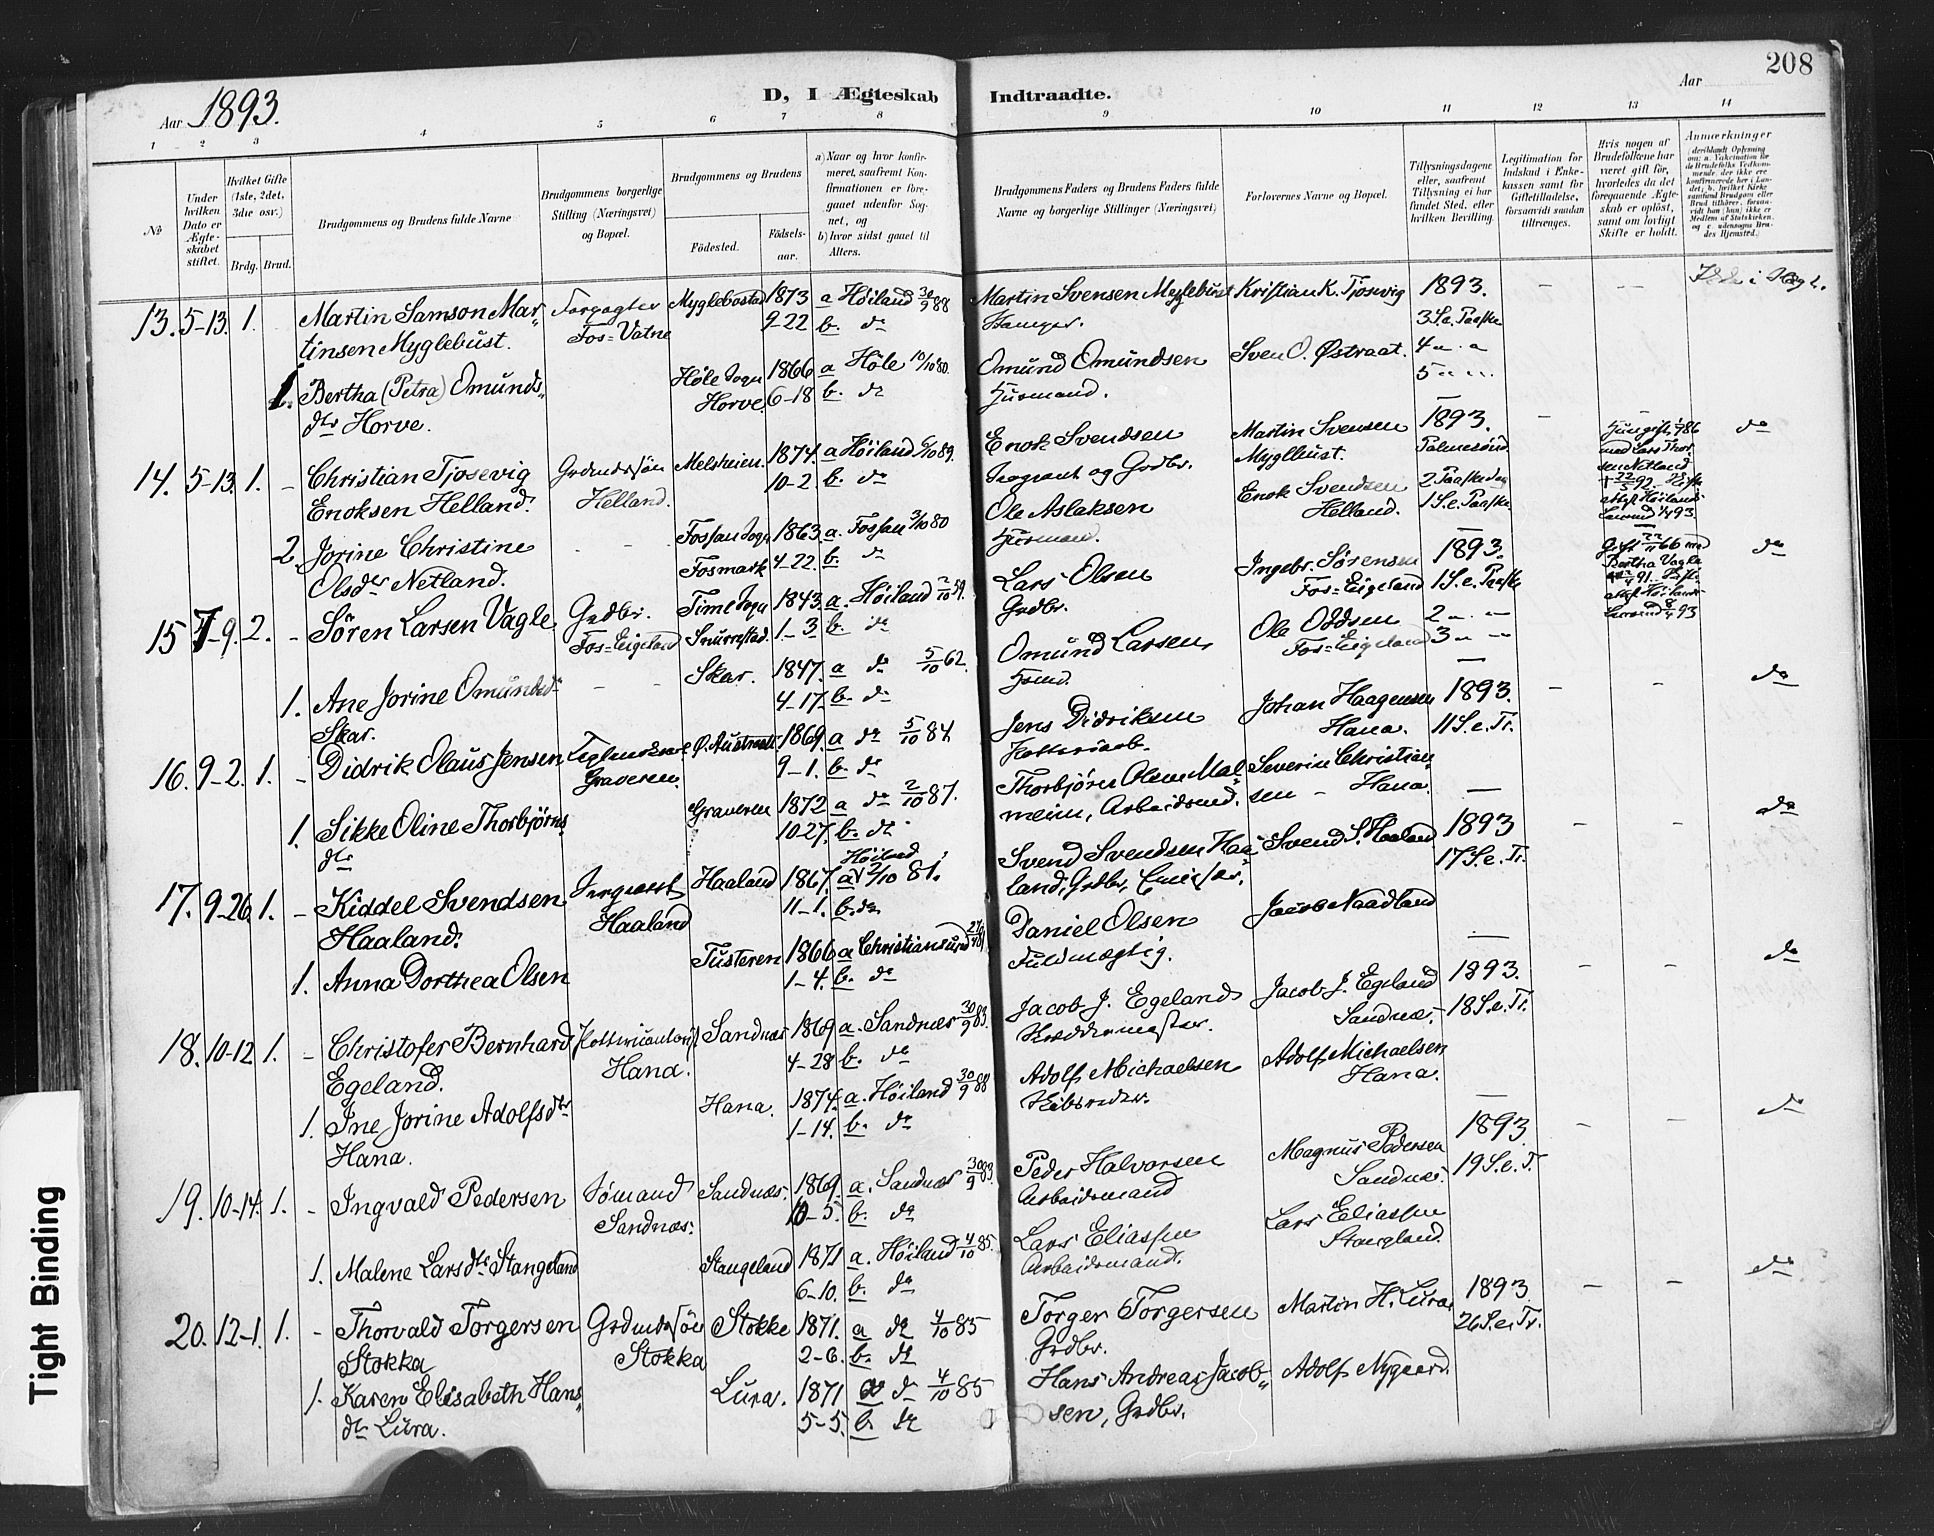 208
Aar 1893.
D, I Ægteskab Indtraadte.
Aar
1 2 3 4 5 6 7 8 9 10 11 12 13 14
No
Under hvilken Dato er Ægteskabet stiftet.
Hvilket Gifte (1ste, 2det, 3die osv.)
Brdg. Brud.
Brudgommens og Brudens fulde Navne
Brudgommens borgerlige Stilling (Næringsvei) og Bopæl.
Brudgommens og Brudens
Fødested.
Fødselsaar.
a) Naar og hvor konfirmeret, saafremt Konfirmationen er foregaaet udenfor Sognet, og
b) hvor sidst gaaet til Alters.
Brudgommens Faders og Brudens Faders fulde Navne og borgerlige Stillinger (Næringsvei)
Forlovernes Navne og Bopæl.
Tillysningsdagene eller, saafremt Tillysning ei har fundet Sted, efter hvilken Bevilling.
Legitimation for Indskud i Enkekassen samt for Giftetilladelse, forsaavidt saadan tiltrænges.
Hvis nogen af Brudefolkene har været gift før, hvorledes da det foregaaende Ægteskab er opløst, samt om lovligt Skifte er holdt.
Anmærkninger
13. 5-13. 1. Martin Samson Martinsen Myglebust. Forpagter Fos-Vatne Myglebostad 1873 9-22 a Høiland 30/9 88 b. do Martin Svensen Myglebust Kristian K. Tjosevig 1893. 3 S. e. Paaske
1. Bertha (Petra) Omundsdtr Horve. Høle Sogn Horve. 1866 6-18 a Høle 10/10 80. b. do Omund Omundsen Husmand. Sven O. Østraat. 4 " " 5 " "
14. 5-13. 1. - Christian Tjosevig Enoksen Helland. Grdmdssøn Helland. Melsheien. 1874. 10-2. a Høiland 89. b. do Enok Svendsen og Grdbr. Martin Svensen Myglbust. 1893. Palmesønd. 2 Paaskedag 1 S. e. Paaske do
2. Jorine Christine Olsdtr Netland. - - Fossan Sogn Fosmark 1863. 4-22. a. Fossan 3/10 80 b. do Ole Aslaksen Husmand. Enok Svendsen Helland.
15 7-9. 2. - Søren Larsen Vagle Grdbr. Fos-Eigeland Time Sogn Snurrestad. 1843. 1-3 a. Høiland 2/10 59. b. do Lars Olsen Grdbr. Ingebr. Sørensen Fos-Eigeland 1893. 1 S. e. Paaske 2 " " 3 " " Gift 66 med Bertha Vagle do
1. Ane Jorine Omundsd. Skar. - - Skar. 1847. 4-17. a do 5/10 62. b. do Omund Larsen, Husmd. Ole Oddsen Fos-Eigeland
16. 9-2. 1. - Didrik Olaus Jensen Graveren. Ø. Austraat. 1869. 9-1. a do 5/10 84. b. do Jens Didriksen Johan Haagensen Hana. 1893. 11 S. e. Tr. - - do
1. Sikke Oline Thorbjørnsdtr Graveren 1872 10-27. a do 2/10 87. b. do Thorbjørn Olsen Malmeim, Arbeidsmd. Severin Christiansen - Hana.
17. 9-26. 1. - Kiddel Svendsen Haaland. Haaland Haaland 1867. 11-1. Høiland a 2/10 81. b. do Svend Svendsen Haaland, Grdbr, Svend S. Haaland 1893 17 S. e. Tr. - - do
1. Anna Dorthea Olsen Tusteren 1866 1-4. a Christiansund b. do Daniel Olsen Fuldmægtig. Jacob Naadland
18. 10-12 1. - Christofer Bernhard Egeland. Hana. Sandnæs 1869 4-28 a. Sandnæs 30/9 83. b. do Jacob J. Egeland Jacob J. Egeland Sandnæs. 1893. 18 S. e. Tr. - - do
1. Ine Jorine Adolfsdtr Hana. Hana. 1874. 1-14. a. Høiland 30/9 88 b. do Adolf Michaelsen Adolf Michaelsen Hana.
19. 10-14. 1. - Ingvald Pedersen Sømand Sandnæs. Sandnæs. 1869. 10-5. a. Sandnæs 30/9 83. b. do Peder Halvorsen Arbeidsmand Magnus Pedersen Sandnæs. 1893. 19 S. e. T. - - do
1. Malene Larsdtr Stangeland Stangeland 1871 6-10. a. Høiland 4/10 85. b. do Lars Eliassen Arbeidsmand. Lars Eliassen Stangland.
20. 12-1. 1. - Thorvald Torgersen Stokka Grdmdssøn Stokka Stokke 1871. 2-6. a do 4/10 85 b. do Torger Torgersen Grdbr. Martin H. Lura. 1893. 26 S. e. Tr. - - do
1. Karen Elisabeth Hansdtr Lura. Lura. 1871 5-5. a do 4/10 85 b. do Hans Andreas Jacobsen, Grdbr. Adolf Nygaard.
Tight Binding